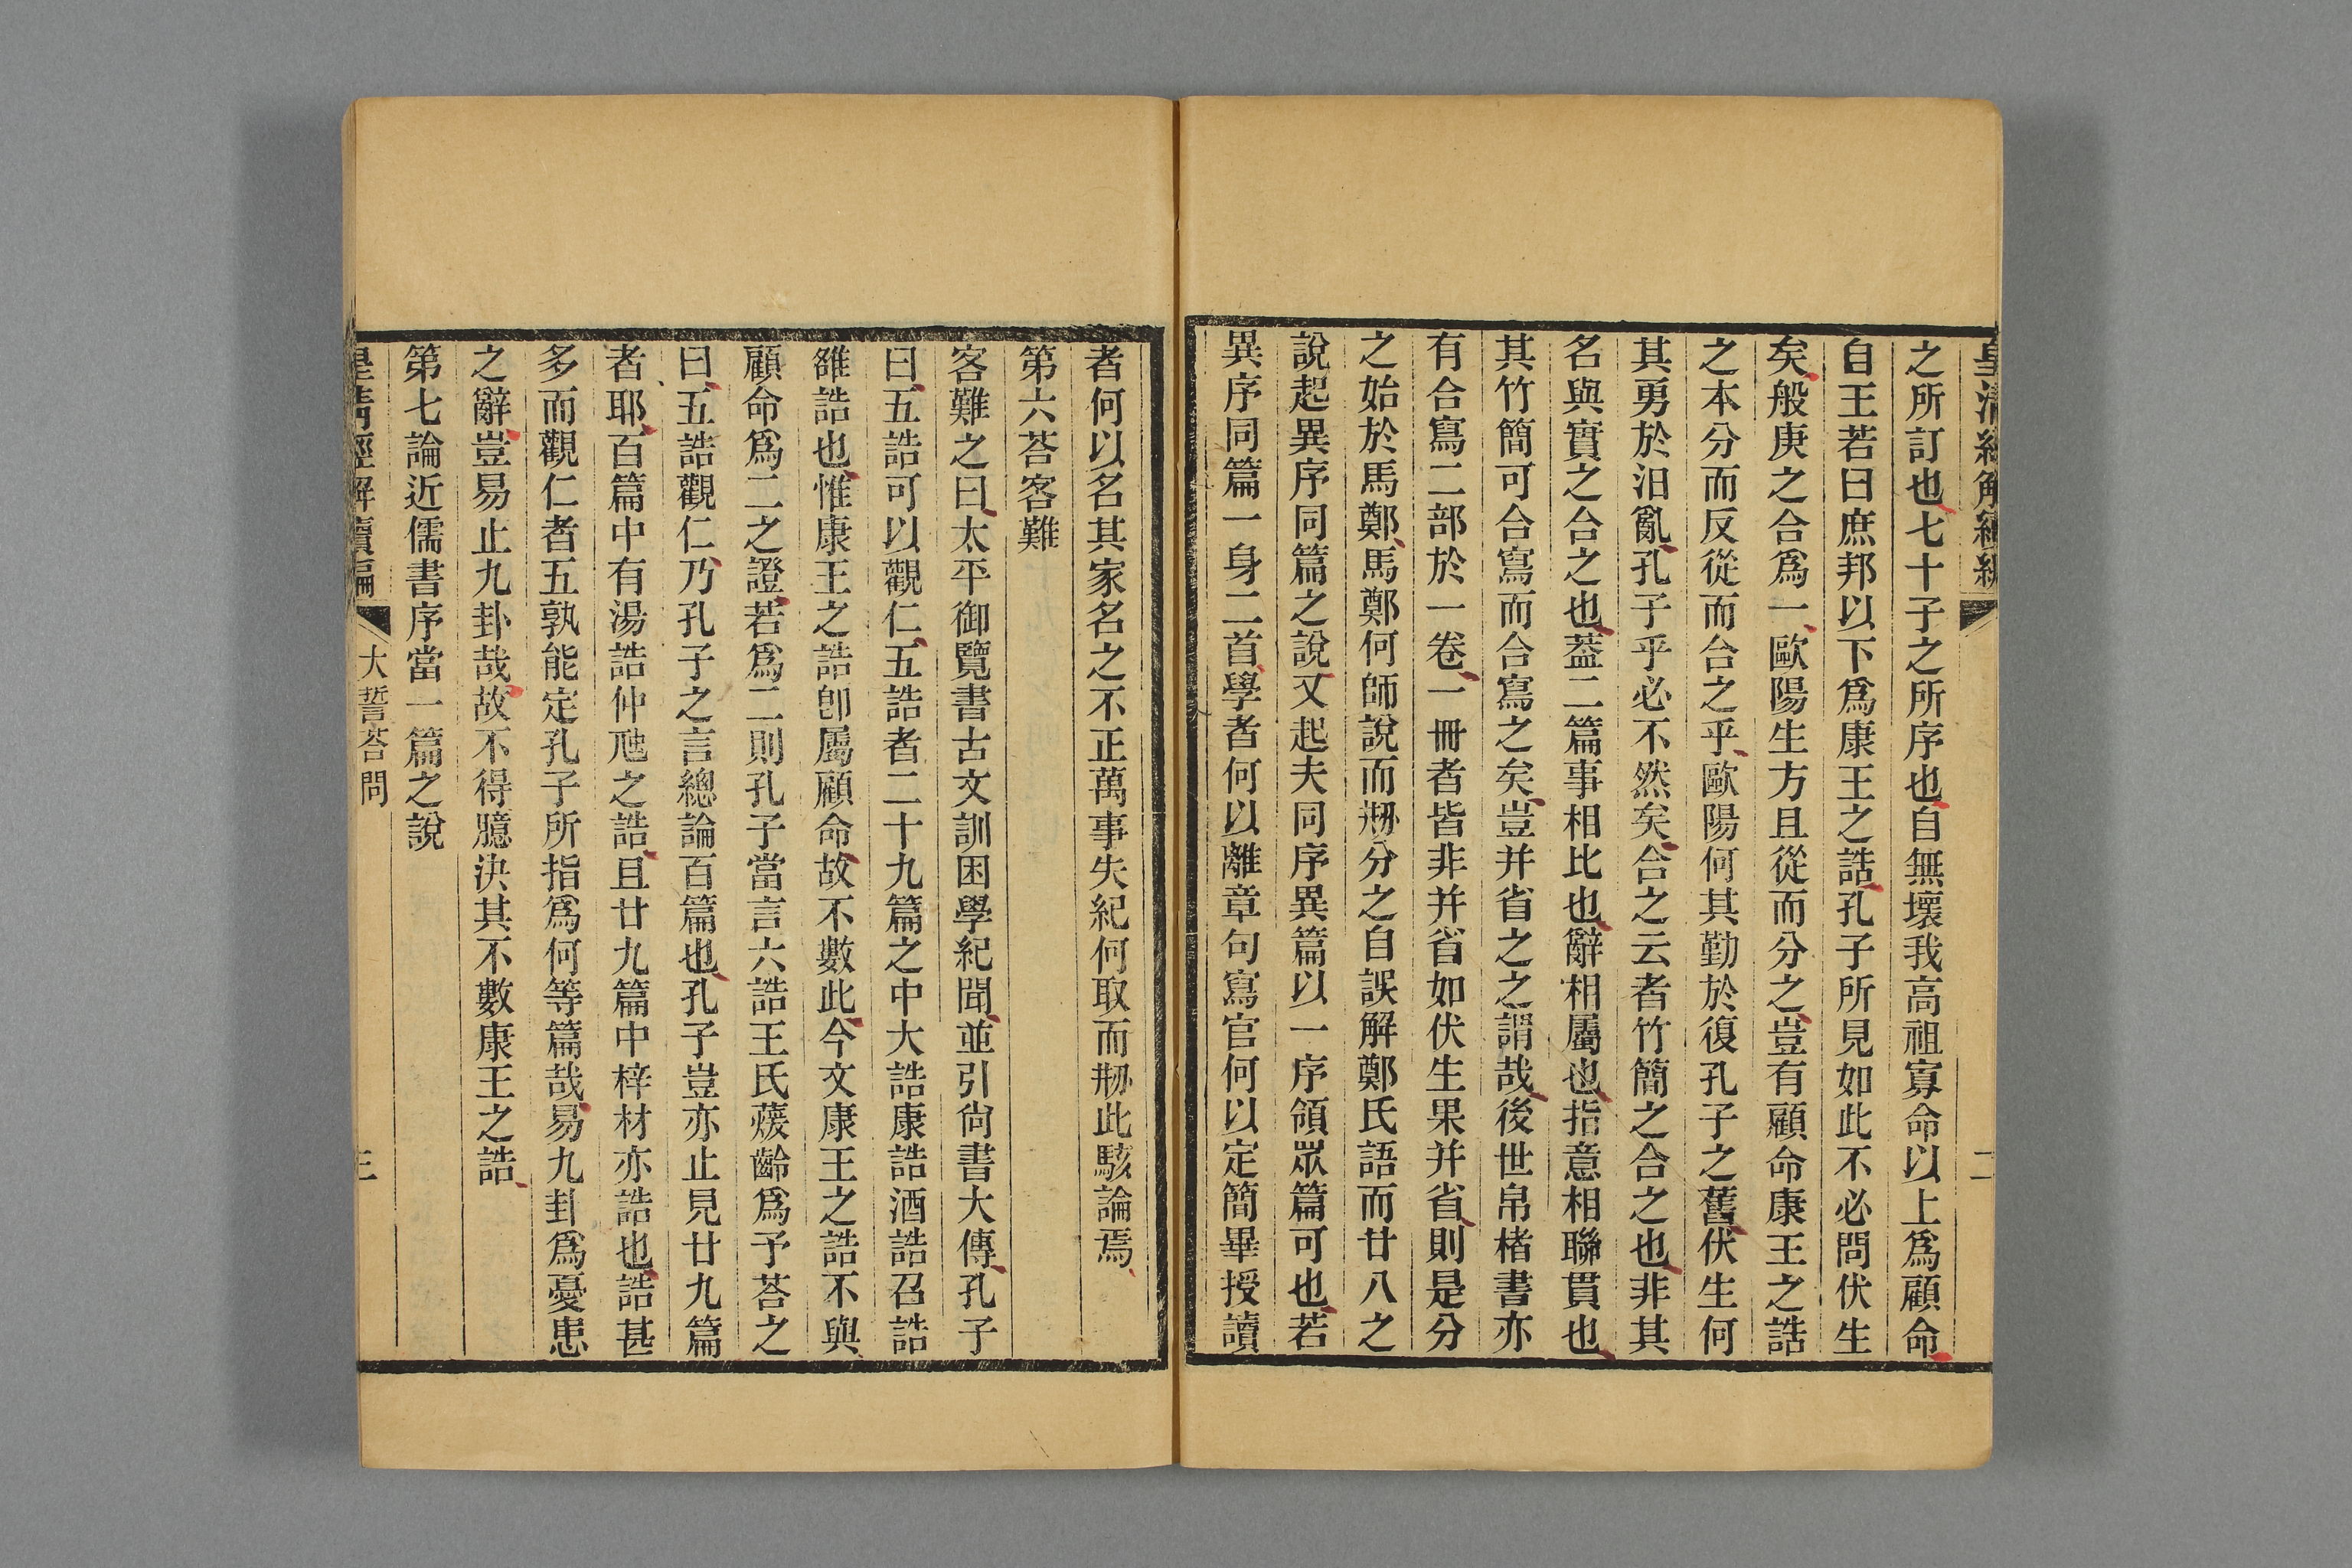 皇清經解續編
二
之所訂也七十子之所序也自無壞我高祖寡命以上爲顧命
自王若曰庶邦以下爲康王之誥孔子所見如此不必問伏生
矣般庚之合爲一歐陽生方且從而分之豈有顧命康王之誥
之本分而反從而合之乎歐陽何其勤於復孔子之舊伏生何
其勇於汨亂孔子乎必不然矣合之云者竹簡之合之也非其
名與實之合之也葢二篇事相比也辭相屬也指意相聯貫也
其竹簡可合寫而合寫之矣豈并省之之謂哉後世帛楮書亦
有合寫二部於一卷一冊者皆非并省如伏生果并省則是分
之始於馬鄭馬鄭何師說而刱分之自誤解鄭氏語而廿八之
說起異序同篇之說又起夫同序異篇以一序領眾篇可也若
異序同篇一身二首學者何以離章句寫官何以定簡畢授讀
者何以名其家名之不正萬事失紀何取而刱此駭論焉
第六荅客難
客難之曰太平御覽書古文訓困學紀聞並引尙書大傳孔子
曰五誥可以觀仁五誥者二十九篇之中大誥康誥酒誥召誥
雒誥也惟康王之誥卽屬顧命故不數此今文康王之誥不與
顧命爲二之證若爲二則孔子當言六誥王氏薐齡爲予荅之
曰五誥觀仁乃孔子之言總論百篇也孔子豈亦止見廿九篇
者耶百篇中有湯誥仲虺之誥且廿九篇中梓材亦誥也誥甚
多而觀仁者五孰能定孔子所指爲何等篇哉易九卦爲憂患
之辭豈易止九卦哉故不得臆決其不數康王之誥
第七論近儒書序當一篇之說
皇清經解續編
大誓荅問
三